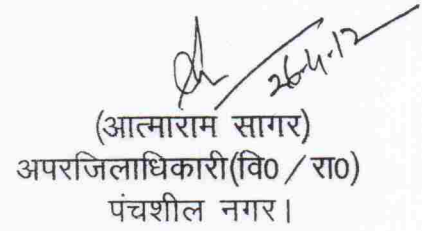 26-4-12
(आत्माराम सागर)
अपरजिलाधिकारी(वि0 / रा0)
पंचशील नगर।